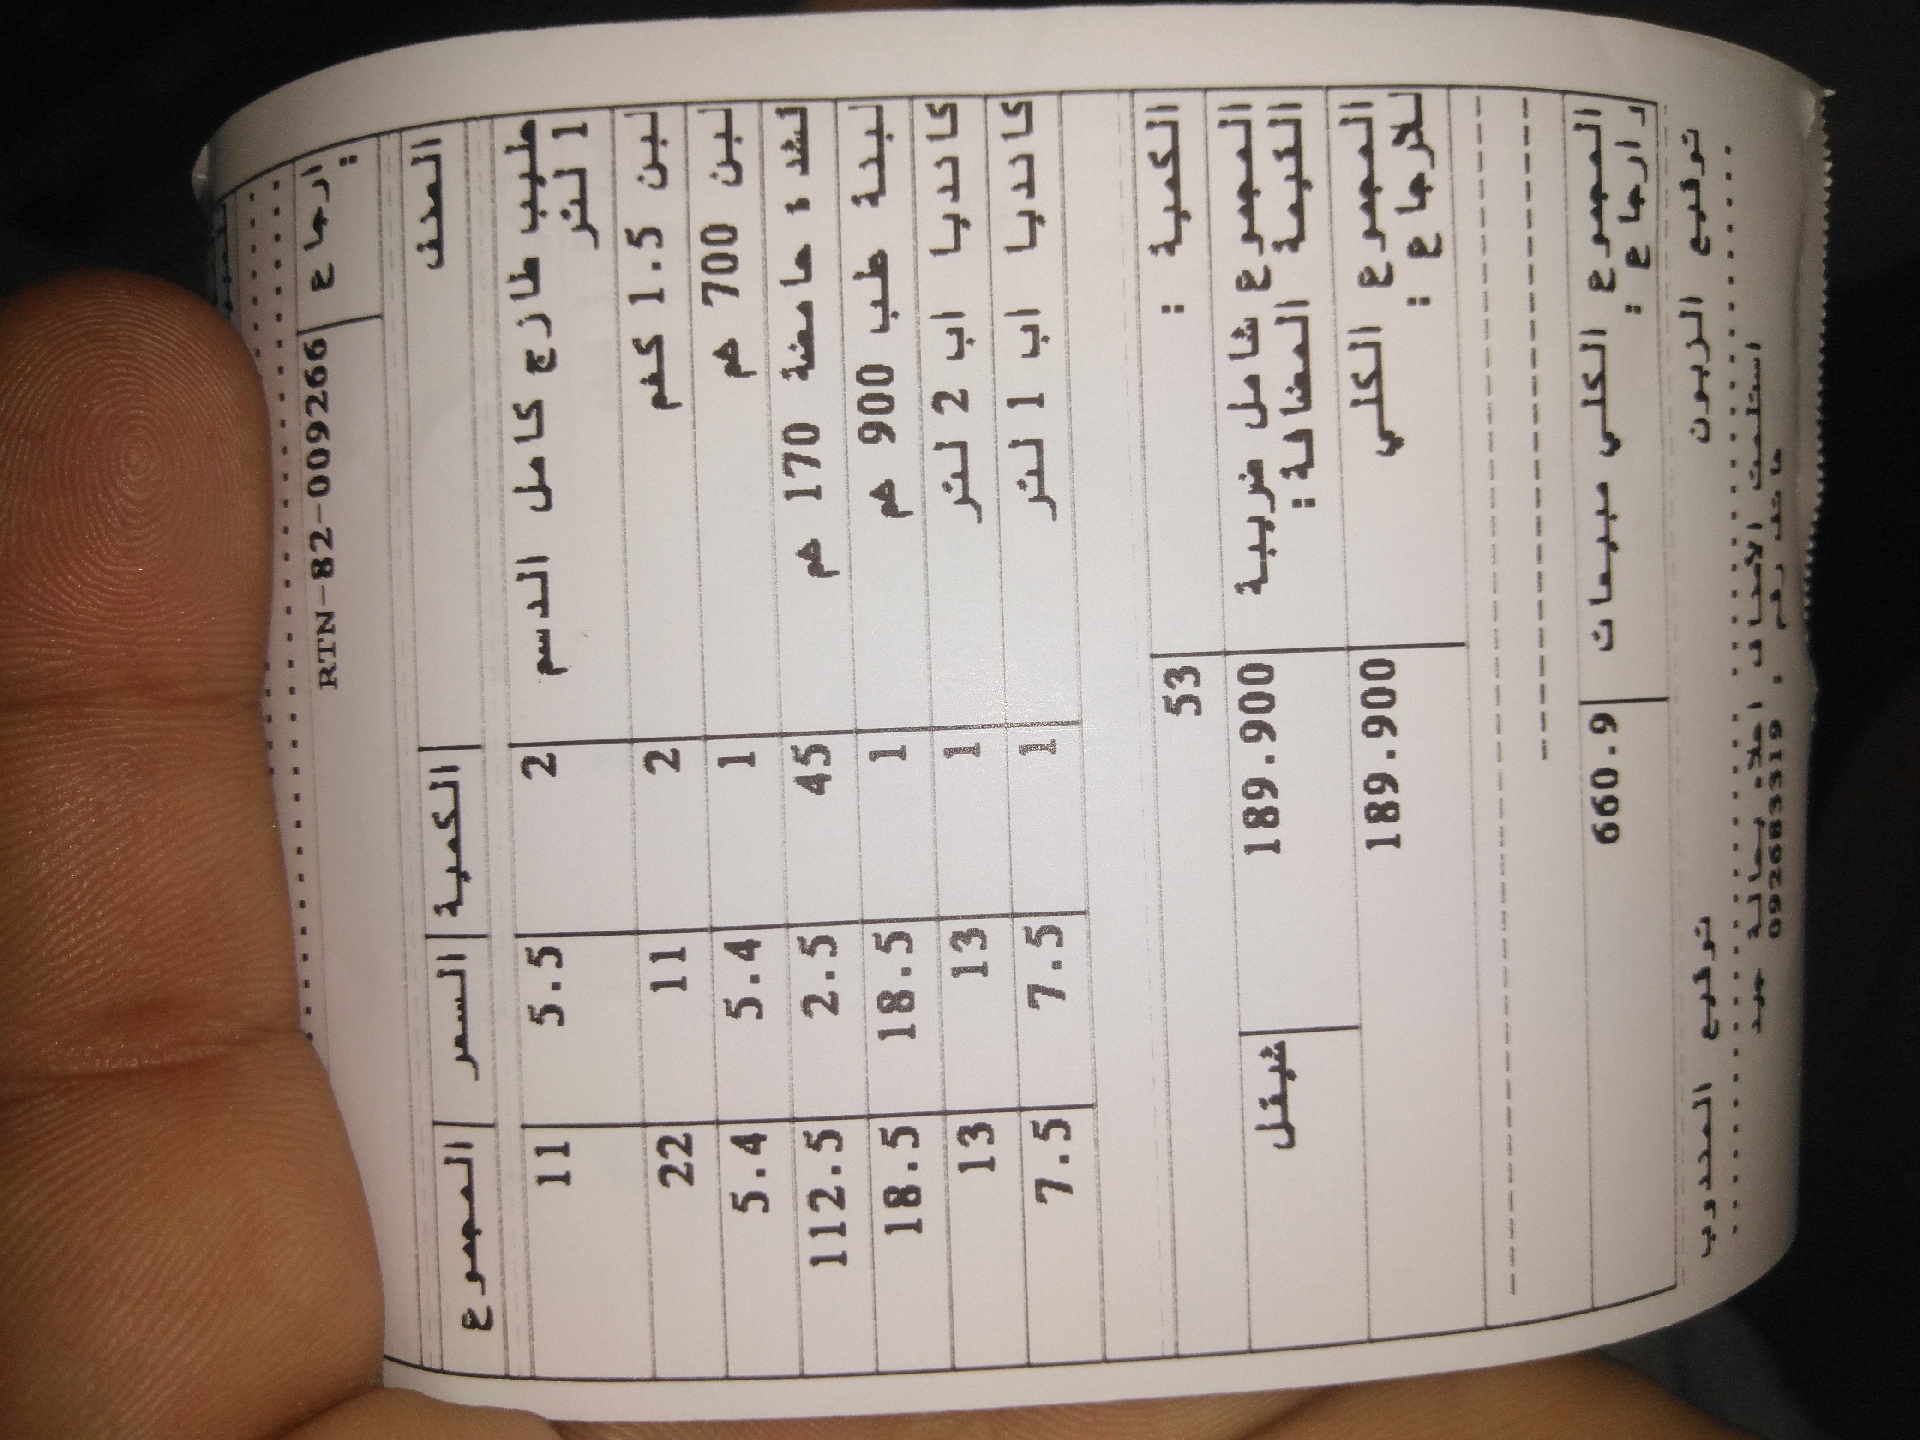 ارجاع : RTN-82-009266
الصنف الكمية السعر المجموع
حليب طازج كامل الدسم 2 5.5 11
1 لتر
لبن 1.5 كغم 2 11 22
لبن 700 غم 1 5.4 5.4
حامضة 170 غم 45 2.5 112.5
لبنة طب 900 غم 1 18.5 18.5
كانديا اب 2 لتر 1 13 13
كانديا اب 1 لتر 1 7.5 7.5
الكمية : 53
المجموع شامل ضريبة 189.900 شيقل
القيمة المضافة:
المجموع الكلي 189.900
للارجاع :
المجموع الكلي مبيعات 660.9
و ارجاع :
توقيع الزبون توقيع المندوب
استلمت الاصناف اعلاه بحالة جيدة
هاتف رقم : 092683319